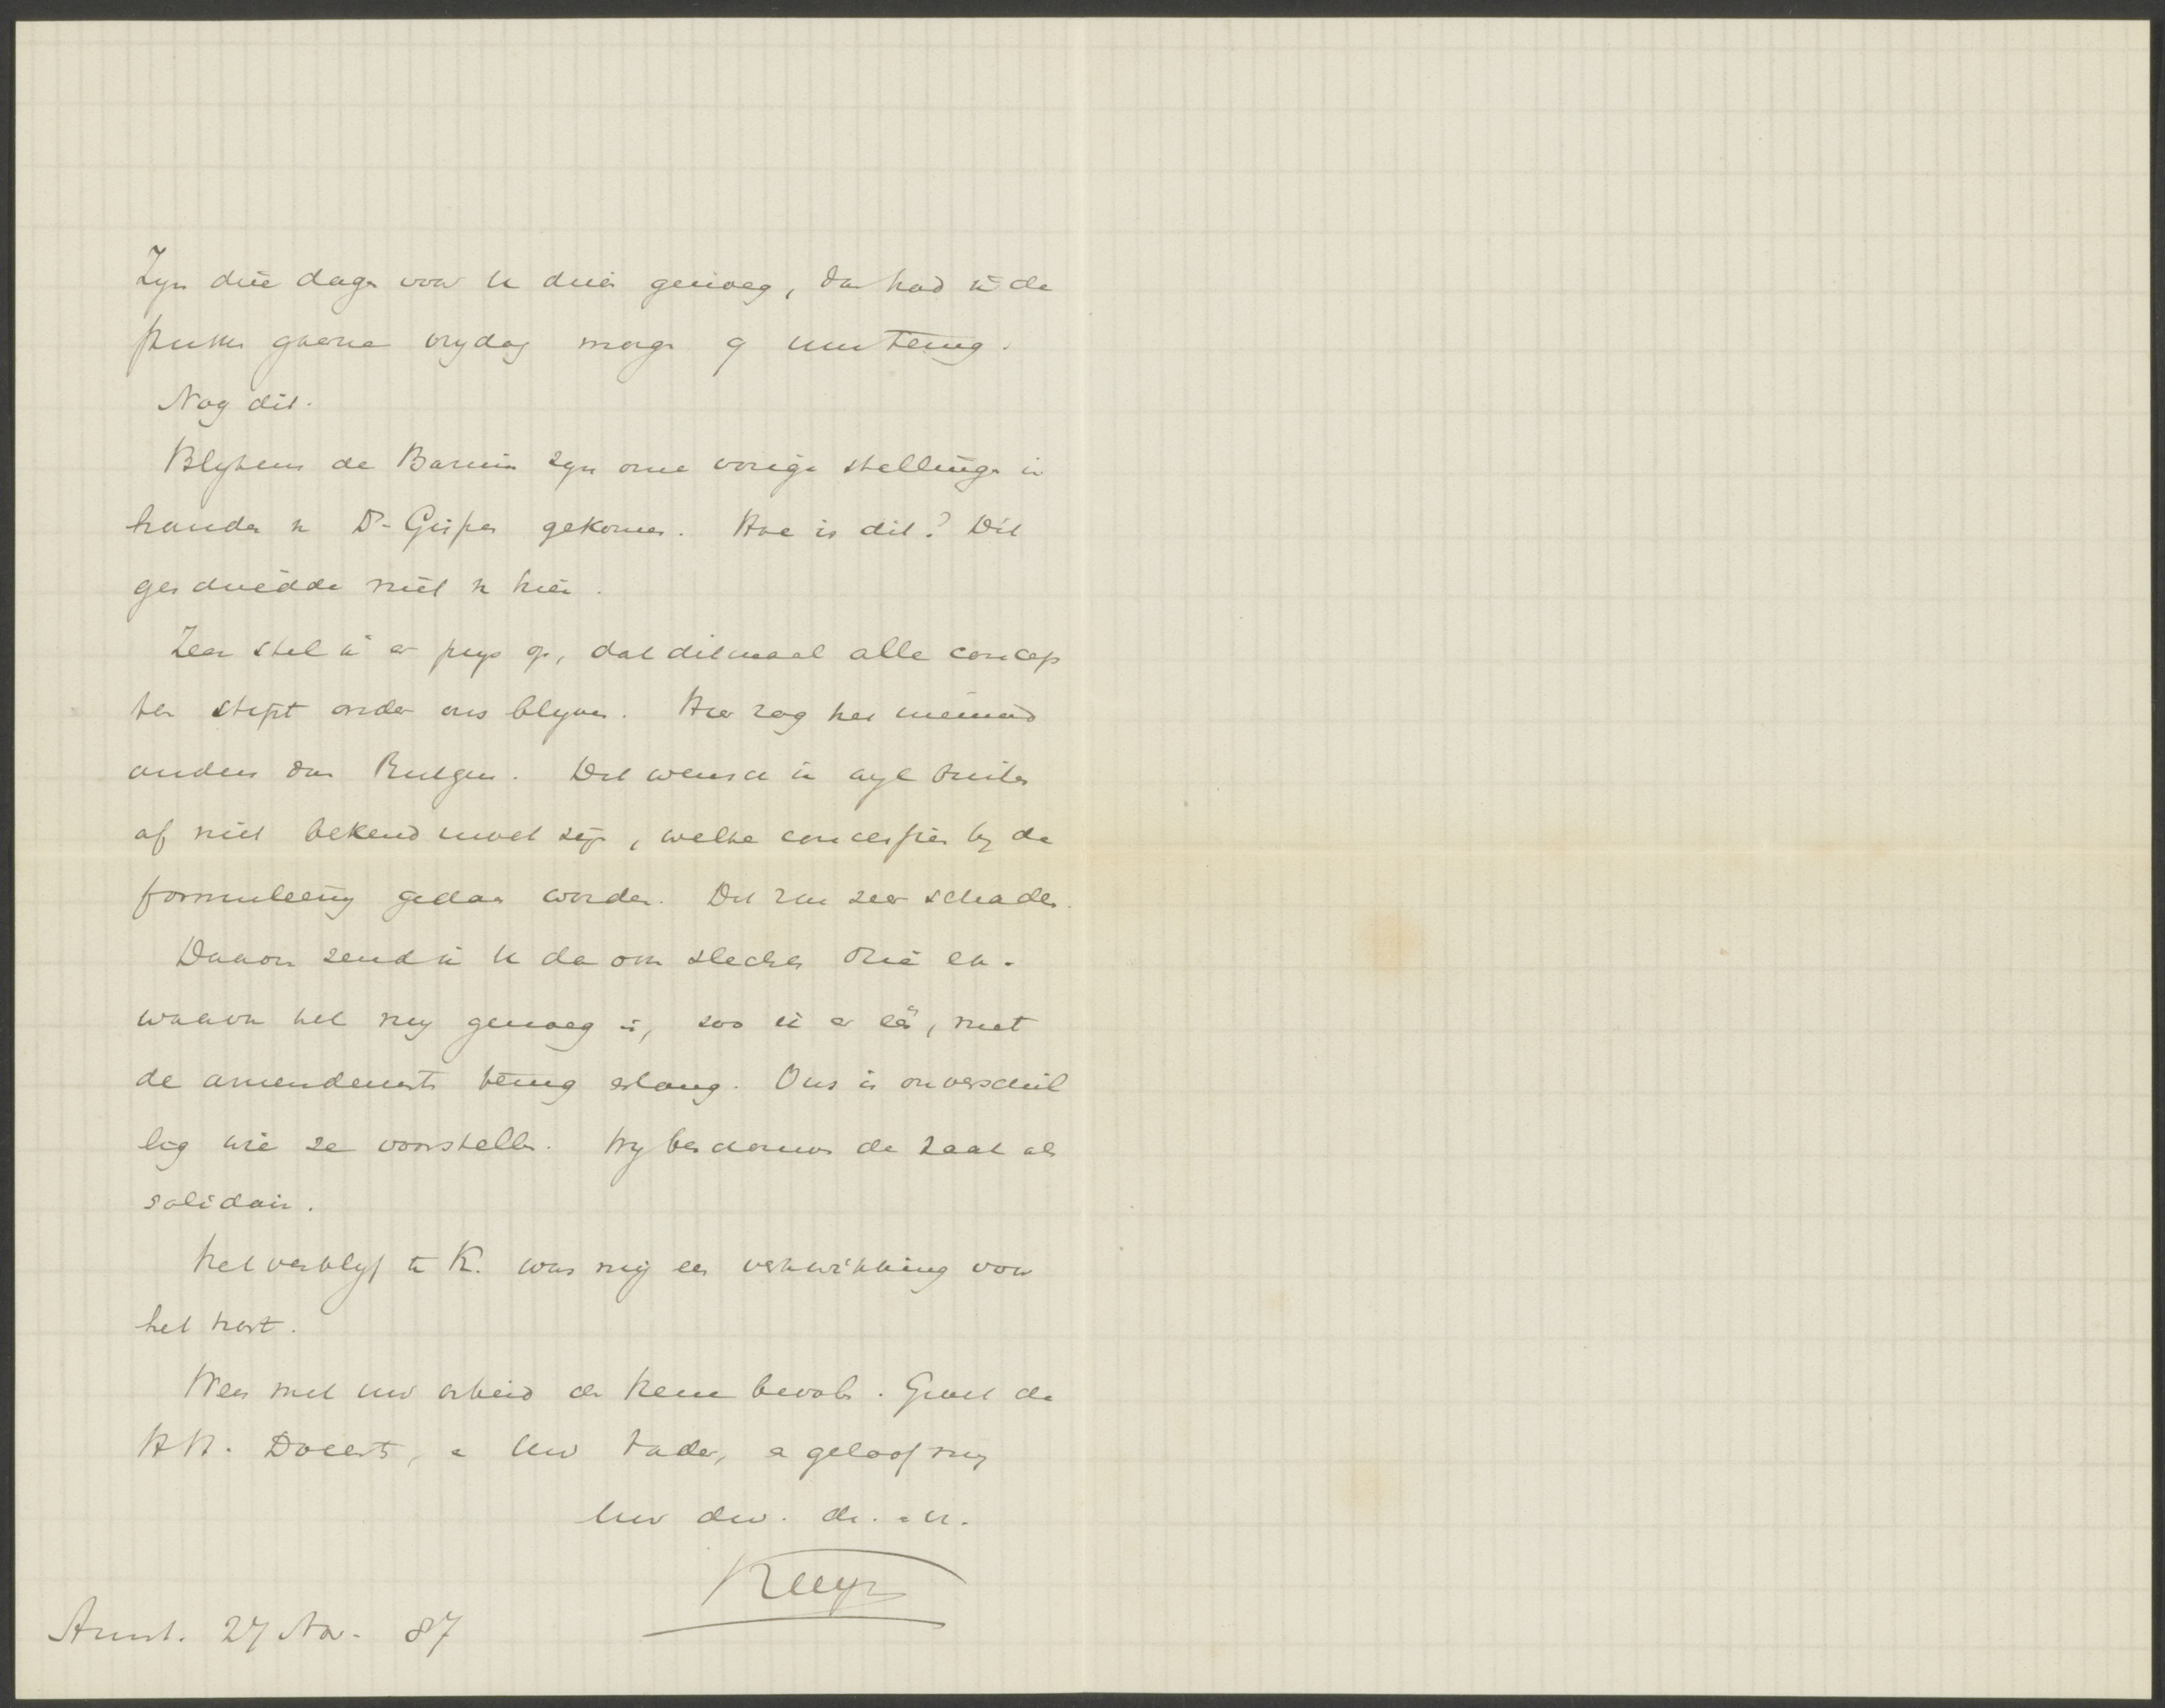 Zyn drie dagen voor U drien genoeg, dan had ik de
stukken gaerne vrydag morgen 9 uur terug.
Nog dit.
Blykens de Bazuin zyn onze vorige stellingen in
handen v. Dr. Gispen gekomen. Hoe is dit? Dit
geschiedde niet v. hier.
Zeer stel ik er prys op, dat ditmaal alle concep
ten stipt onder ons blyven. Hier zag hen niemand
anders dan Rutgers. Dit wensch ik wyl buiten
af niet bekend moet zyn, welke concessien by de
formuleering gedaan worden. Dit zou zeer schaden.
Daarom zend ik U de om slechts drie ex.
waarvan het my genoeg is, zoo ik er één, met
de amendements terug erlang. Ons is onverschil
lig wie ze voorstelle. Wy beschouwen de zaak als
solidair.
Het verblyf te K. was my een verkwikking voor
het hart.
Wees met uw arbeid den Heere bevolen. Groet de
HH. Docents, en Uw Vader, en geloof my
Uw dw. dr. en vr.
Kuyper
Amst. 27 Nov. 87